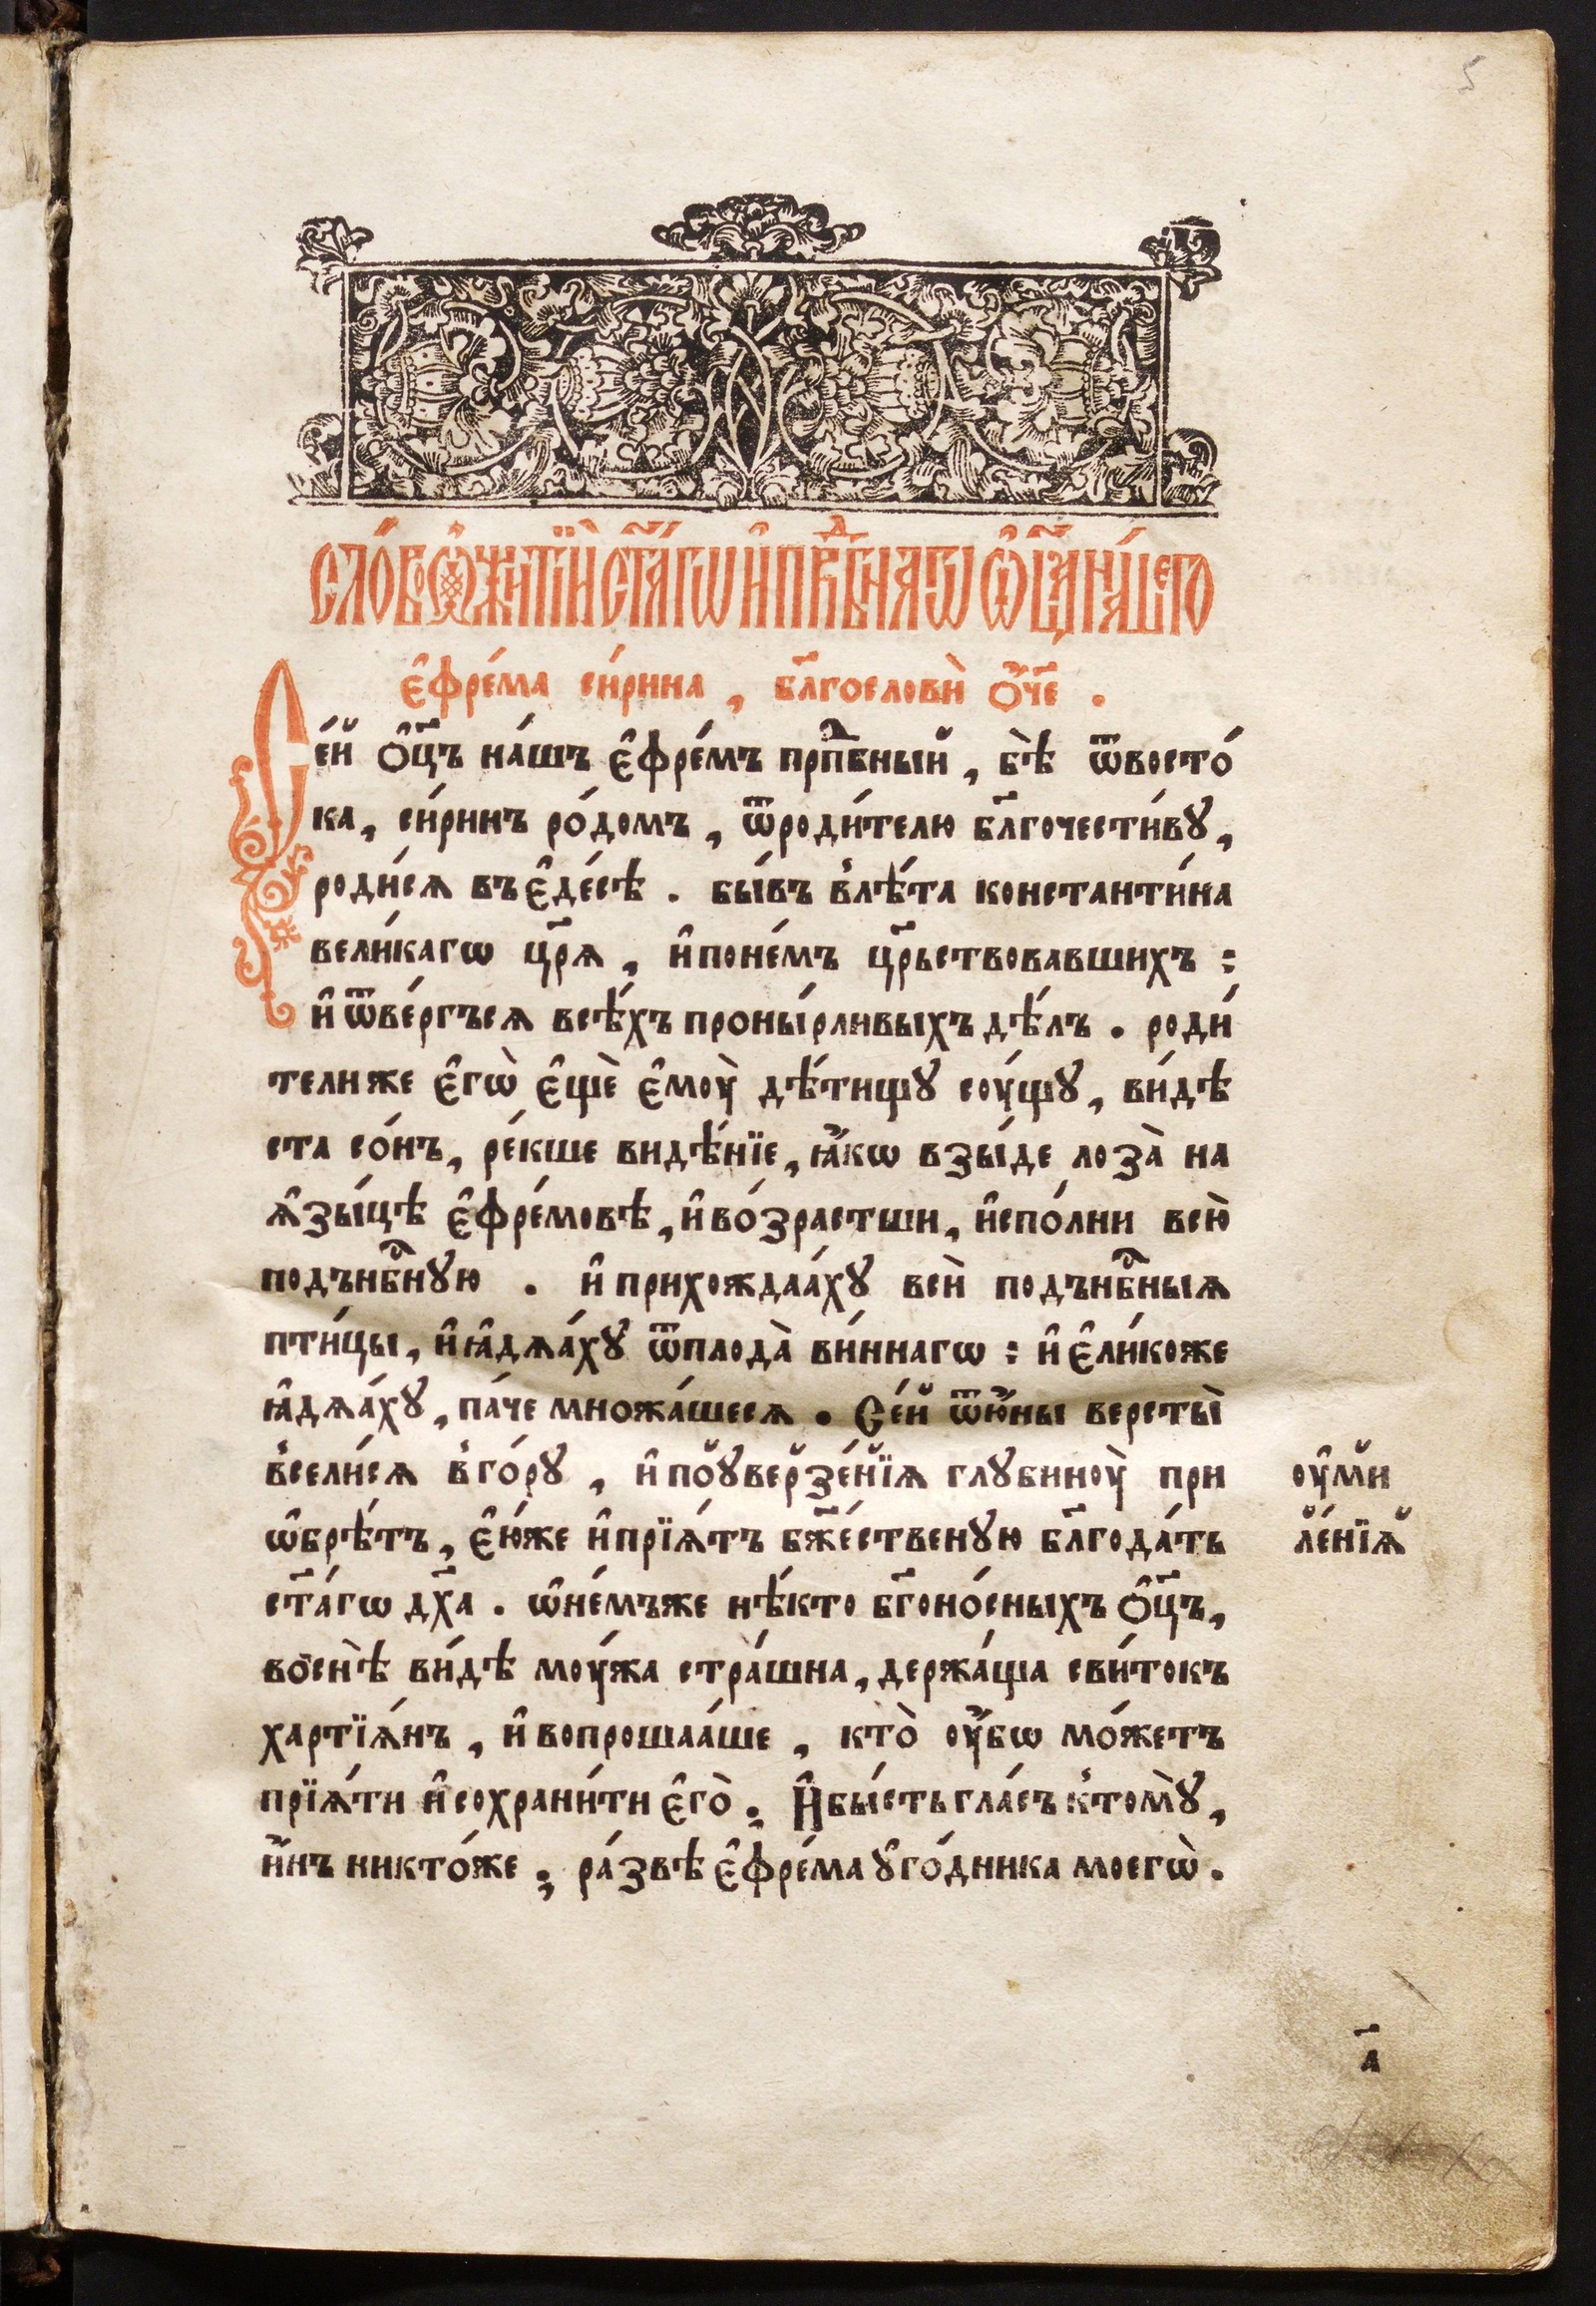 5
сло́во ѡ҆ житїѝ ст҃а́гѡ и҆ прпⷣбнагѡ ѻ҆ц҃а̀ на́шегѡ
є҆фре́ма си́рина , бл҃гословѝ ѻ҆́ч҃е .
Се́й ѻ҆ц҃ъ на́шъ є҆фре́мъ прпⷣбный , бѣ̀ ѿвосто́
ка , си́ринъ ро́домъ , ѿроди́телю бл҃гочести́вꙋ ,
роди́сѧ въ є҆де́сѣ . бы́въ в̾лѣ́та константи́на
вели́кагѡ цр҃ѧ , и҆ поне́мъ цр҃ьствовавшихъ :
и҆ ѿве́ргъсѧ всѣ́хъ проны́рливыхъ дѣ́лъ . роди́
тели же є҆гѡ̀ є҆щѐ є҆моу̀ дѣ́тищꙋ соу́щꙋ , ви́дѣ
ста со́нъ , ре́кше видѣ́нїе , ꙗ҆́кѡ взы́де лоза̀ на
ѧ҆зы́цѣ є҆фре́мовѣ , и҆ во́зрастши , и҆спо́лни всю̀
подънбⷭ҇нꙋю . и҆ прихождаа́хꙋ всѝ подънбⷭ҇ныѧ
пти́цы , и҆ ꙗ҆дѧ́хꙋ ѿплода̀ ви́ннагѡ : и҆ є҆ли́коже
ꙗ҆дѧ́хꙋ , па́че множа́шесѧ . Се́й ѿю҆́ны версты̀
в̾сели́сѧ в̾го́рꙋ , и҆ поꙋверзе́нїѧ глꙋбиноу̀ при
ѡ҆брѣ́тъ , є҆ю́же и҆ прїѧ́тъ бж҃е́ственꙋю бл҃года́ть
ст҃а́гѡ дх҃а . ѡ҆не́мъже нѣ́кто бг҃оно́сныхъ ѻ҆ц҃ъ ,
воснѣ̀ ви́дѣ моу́жа стра́шна , держа́ща сви́токъ
хартїѧ́нъ , и҆ вопрошаа́ше , кто̀ оу҆́бѡ мо́жетъ
прїѧ́ти и҆ сохрани́ти є҆го̀ . И҆ бы́сть гла́съ к̾томꙋ̀ ,
и҆́нъ никто́же ; ра́звѣ є҆фре́ма ꙋ҆го́дника моегѡ̀ .
оу҆ми
ле́нїѧ
а҃